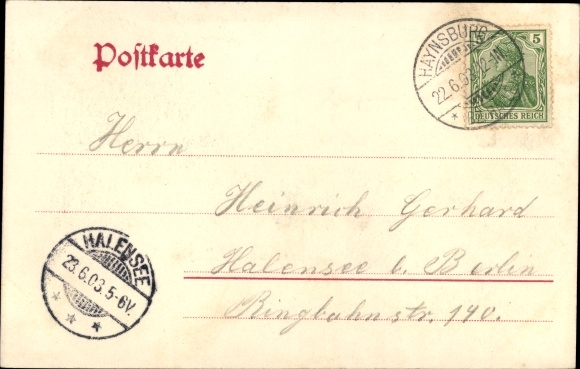 Postkarte
HAYNSBURG
22.6.03. 2-
5
DEUTSCHES REICH
Herrn
Heinrich Gerhard
Halensee b. Berlin
Ringbahnstr. 140.
HALENSEE
23.6.03.5-6V.